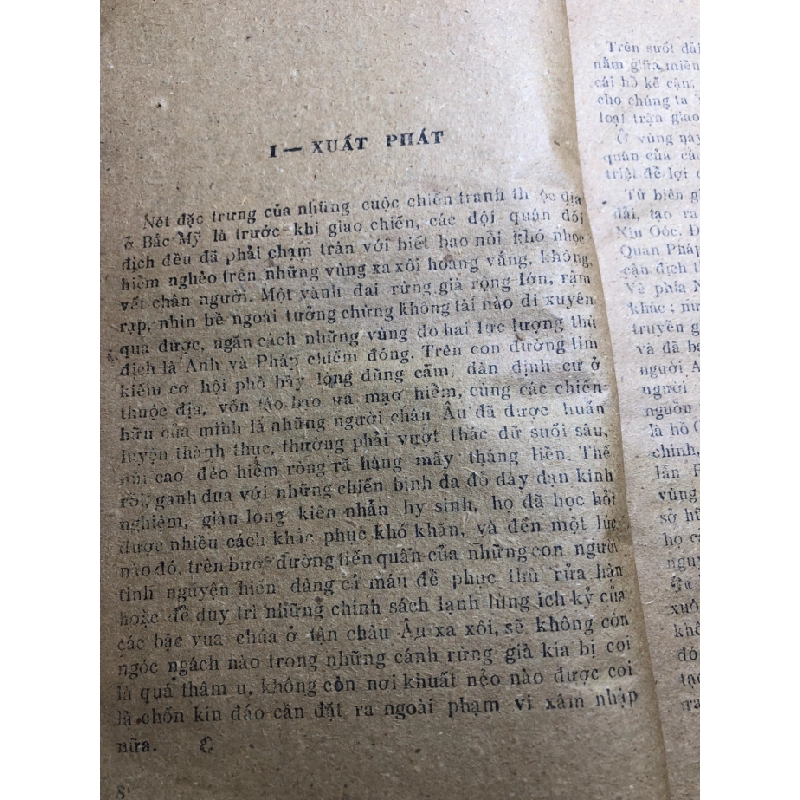 I — XUẤT PHÁT
Nét đặc trưng của những cuộc chiến tranh thuộc địa
ở Bắc Mỹ là trước khi giao chiến, các đội quân đối
địch đều đã phải chạm trán với biết bao nỗi khó nhọc
hiểm nghèo trên những vùng xa xôi hoang vắng, không
vết chân người. Một vành đai rừng già rộng lớn, rậm
rạp, nhìn bề ngoài tưởng chừng không tài nào đi xuyên
qua được, ngăn cách những vùng do hai lực lượng thù
địch là Anh và Pháp chiếm đóng. Trên con đường tìm
kiếm cơ hội phô bày lòng dũng cảm, dân định cư ở
thuộc địa, vốn táo bạo và mạo hiểm, cùng các chiến
hữu của mình là những người châu Âu đã được huấn
luyện thành thục, thường phải vượt thác dữ suối sâu,
núi cao đèo hiểm ròng rã hàng mấy tháng liền. Thế
rồi, ganh đua với những chiến binh da đỏ dày dạn kinh
nghiệm, giàu lòng kiên nhẫn hy sinh, họ đã học hỏi
được nhiều cách khắc phục khó khăn, và đến một lúc
nào đó, trên bước đường tiến quân của những con người
tình nguyện hiến dâng cả máu để phục thù rửa hận
hoặc để duy trì những chính sách lạnh lùng ích kỷ của
các bậc vua chúa ở tận châu Âu xa xôi, sẽ không còn
ngóc ngách nào trong những cánh rừng già kia bị coi
là quá thâm u, không còn nơi khuất nẻo nào được coi
là chốn kín đáo cần đặt ra ngoài phạm vi xâm nhập
nữa.
8
Trên suốt dải
nằm giữa miền
cái hồ kế cận,
cho chúng ta
loại trận giao
Ở vùng này
quân của các
triệt để lợi
Từ biên gi
dài, tạo ra
Niu Oóc. Đ
Quân Pháp
cận địch t
Về phía N
khác; nư
truyền g
và đã b
người A
người
nguồn
là hồ
chính,
lần P
vùng
sở hữ
họ c
nguy
xuô
khô
đó
tạo
ra